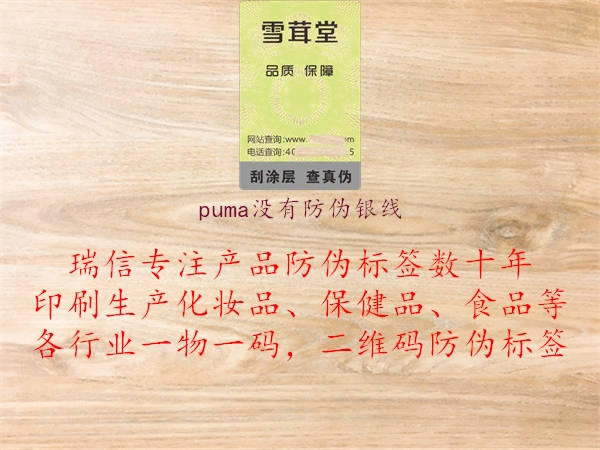 雪茸堂
品质 保障
网站查询:www. om
电话查询:40 5
刮涂层 查真伪
puma没有防伪银线
瑞信专注产品防伪标签数十年
印刷生产化妆品、保健品、食品等
各行业一物一码，二维码防伪标签